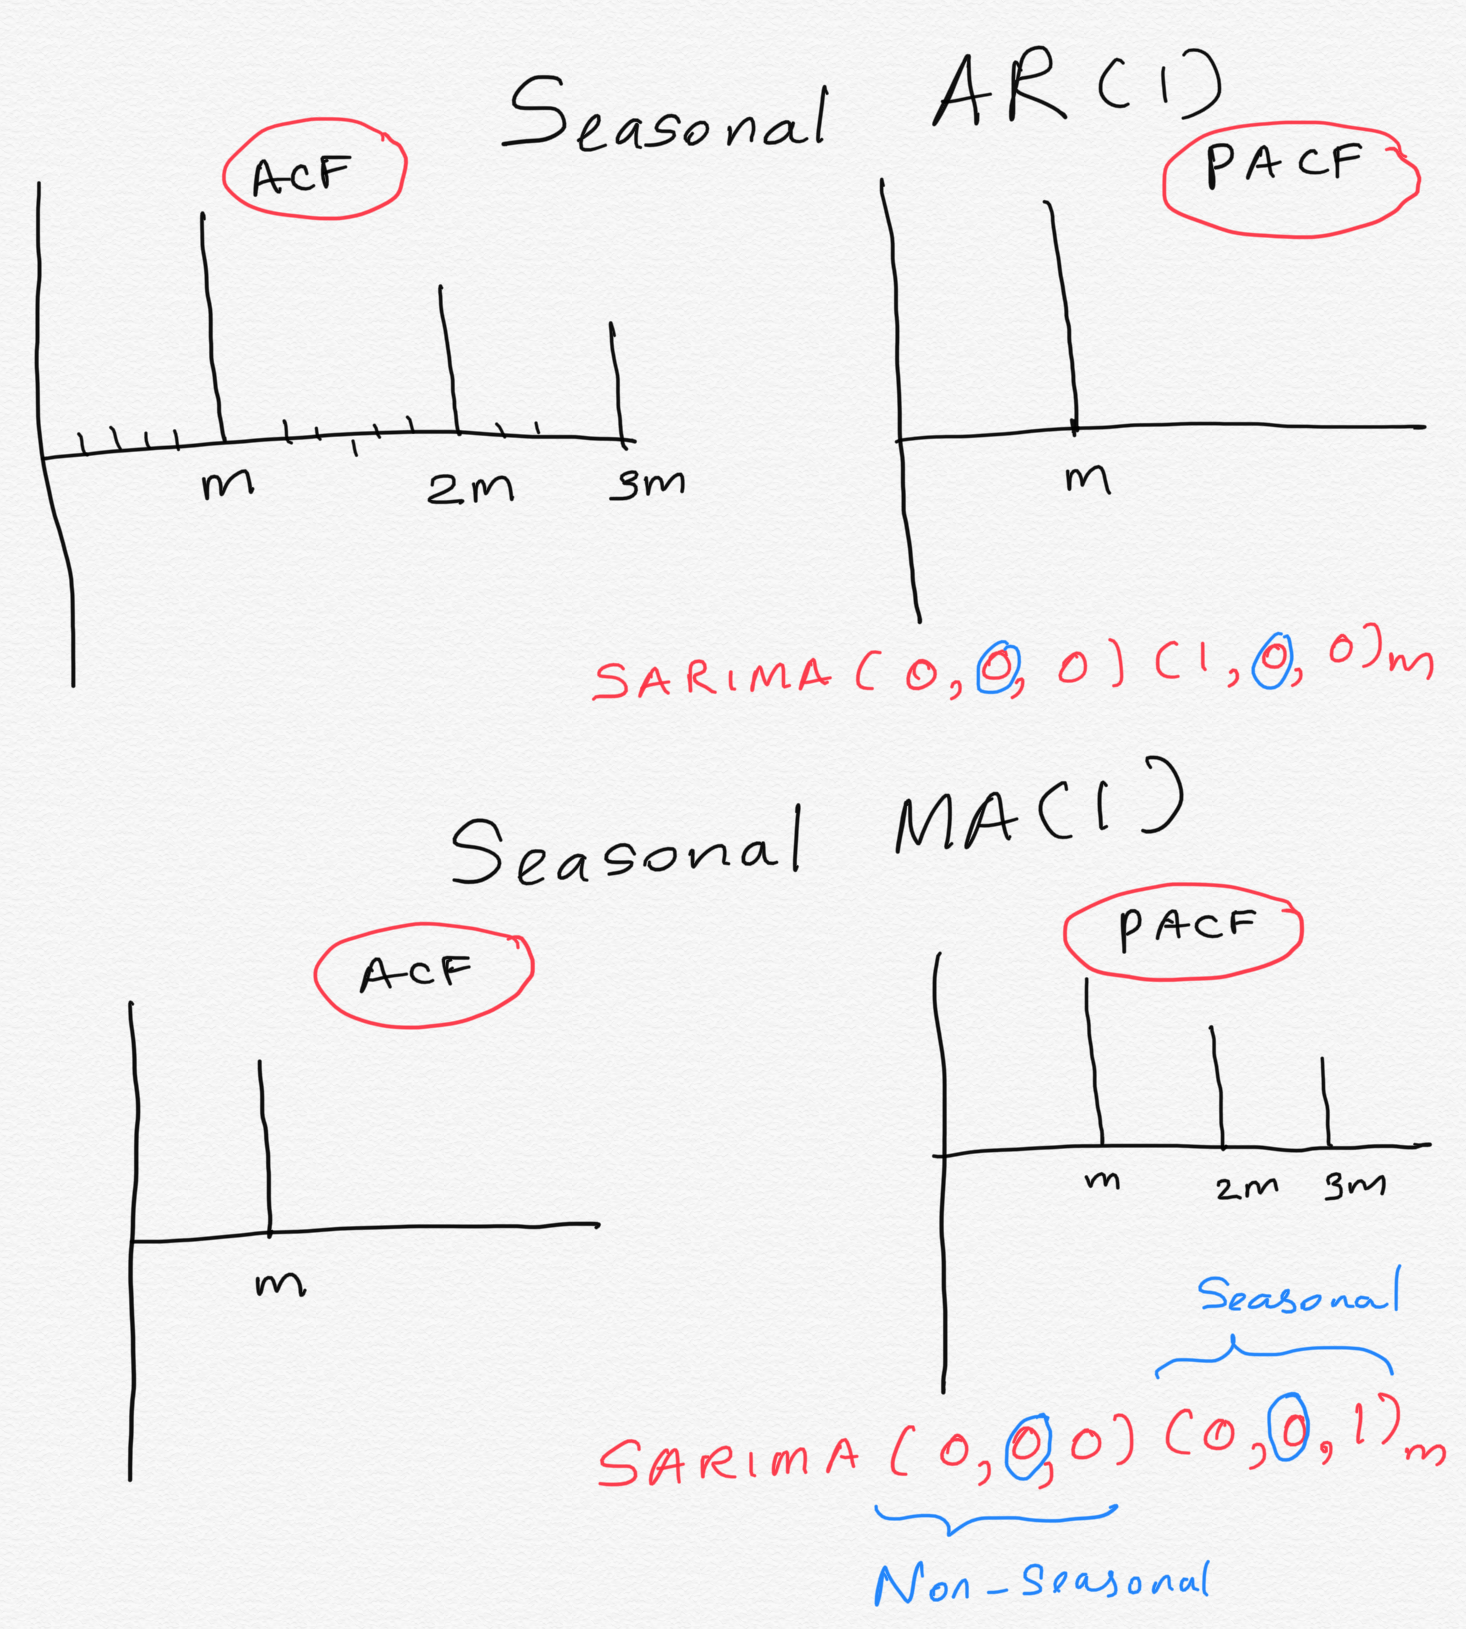 Seasonal AR(1)
ACF
PACF
m 2m 3m
m
SARIMA(0,0,0)(1,0,0)m
Seasonal MA(1)
ACF
PACF
m
m 2m 3m
Seasonal
SARIMA(0,0,0)(0,0,1)m
Non-Seasonal